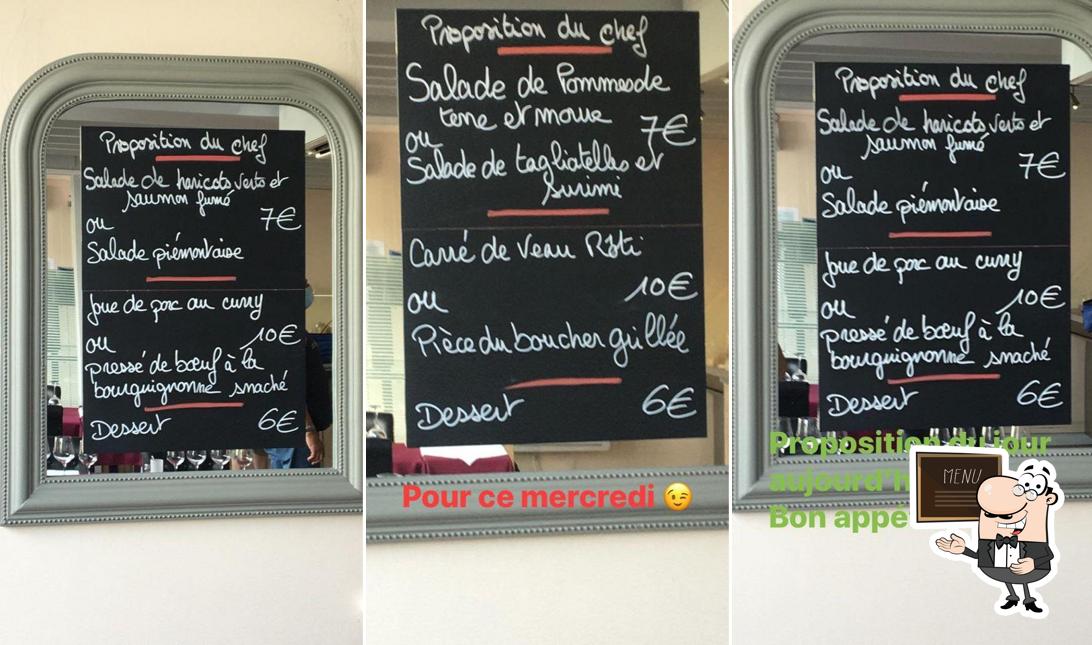 Proposition du chef
Salade de haricots verts et
saumon fumé
7€
ou
Salade piémontaise
Joue de porc au curry
10€
ou
pressé de bœuf à la
bourguignonne snaché
Dessert 6€
Proposition du chef
Salade de Pommes de
terre et morue
7€
ou
Salade de tagliatelles et
surimi
Carré de Veau Rôti
10€
ou
Pièce du boucher grillée
Dessert 6€
Pour ce mercredi 😉
Proposition du chef
Salade de haricots verts et
saumon fumé
7€
ou
Salade piémontaise
Joue de porc au curry
10€
ou
pressé de bœuf à la
bourguignonne snaché
Dessert 6€
Proposition du jour
Bon
MENU